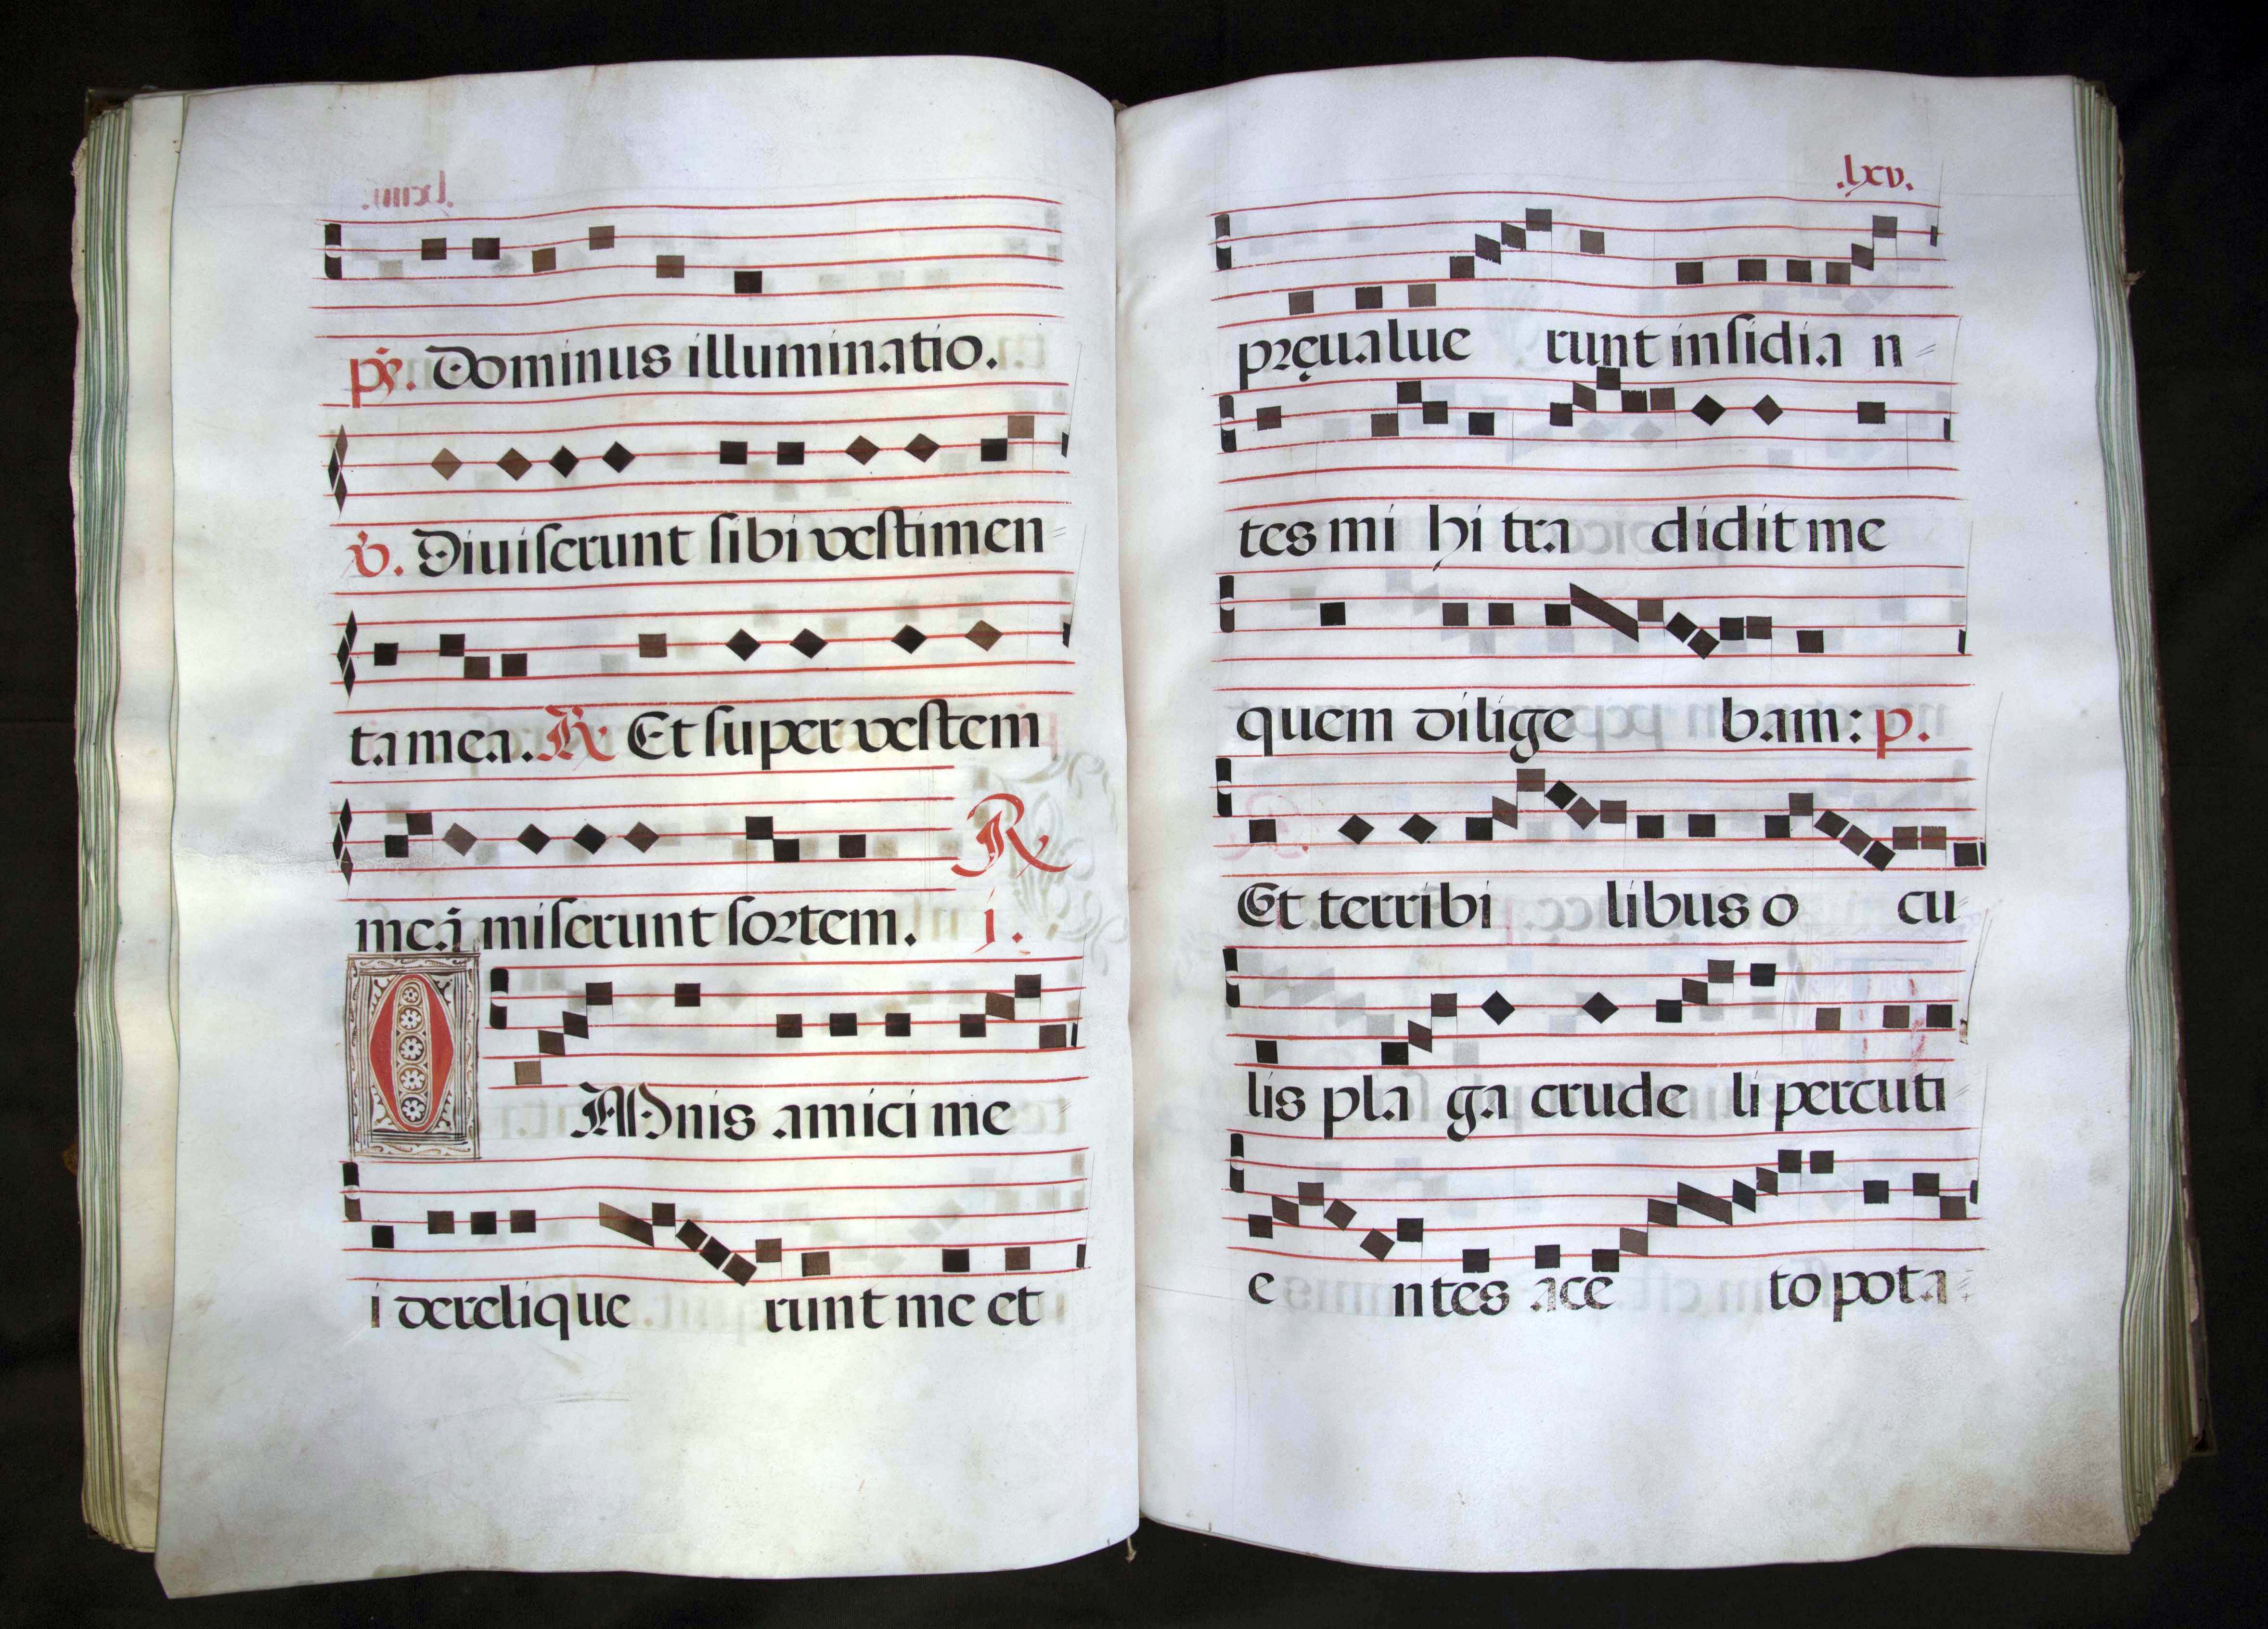 ps. Dominus illuminatio.
v. Diuiserunt sibi vestimen
ta mea. R Et super vestem
R
meā miserunt sortem. j.
OMnis amici me
i derelique runt me et
.lxv.
pręualue runt insidia n
tes mi hi tra didit me
quem dilige bam: p.
Et terribi libus o cu
lis pla ga crude li percuti
e ntes ace to pota